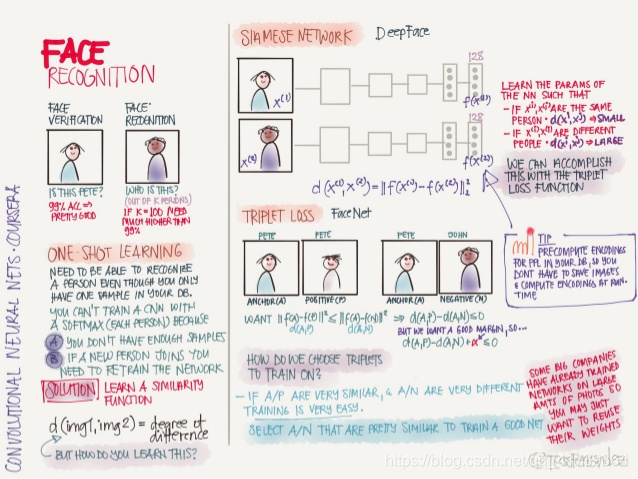 CONVOLUTIONAL NEURAL NETS · COURSERA
FACE
RECOGNITION
FACE
VERIFICATION
IS THIS PETE?
99% ACC ⇒
PRETTY GOOD
FACE
RECOGNITION
WHO IS THIS?
(OUT OF K PERSONS)
IF K=100 NEED
MUCH HIGHER THAN
99%
ONE-SHOT LEARNING
NEED TO BE ABLE TO RECOGNIZE
A PERSON EVEN THOUGH YOU ONLY
HAVE ONE SAMPLE IN YOUR DB.
YOU CAN'T TRAIN A CNN WITH
A SOFTMAX (EACH PERSON) BECAUSE
A YOU DON'T HAVE ENOUGH SAMPLES
B IF A NEW PERSON JOINS YOU
NEED TO RETRAIN THE NETWORK
SOLUTION LEARN A SIMILARITY
FUNCTION
d(img1, img2) = degree of
difference
BUT HOW DO YOU LEARN THIS?
SIAMESE NETWORK DeepFace
x⁽¹⁾
128
f(x⁽¹⁾)
x⁽²⁾
128
f(x⁽²⁾)
d(x⁽¹⁾, x⁽²⁾) = ‖f(x⁽¹⁾) - f(x⁽²⁾)‖²₂
LEARN THE PARAMS OF
THE NN SUCH THAT
- IF x⁽ⁱ⁾, x⁽ʲ⁾ ARE THE SAME
PERSON · d(xⁱ, xʲ) ⇒ SMALL
- IF x⁽ⁱ⁾, x⁽ʲ⁾ ARE DIFFERENT
PEOPLE · d(xⁱ, xʲ) ⇒ LARGE
WE CAN ACCOMPLISH
THIS WITH THE TRIPLET
LOSS FUNCTION
TRIPLET LOSS FaceNet
PETE PETE PETE JOHN
ANCHOR (A) POSITIVE (P) ANCHOR (A) NEGATIVE (N)
WANT ‖f(A)-f(P)‖² ≤ ‖f(A)-f(N)‖² ⇒ d(A,P)-d(A,N) ≤ 0
d(A,P) d(A,N)
BUT WE WANT A GOOD MARGIN, SO...
d(A,P)-d(A,N)+α ≤ 0
TIP
PRECOMPUTE ENCODINGS
FOR PPL IN YOUR DB, SO YOU
DONT HAVE TO SAVE IMAGES
& COMPUTE ENCODINGS AT RUN-
TIME
HOW DO WE CHOOSE TRIPLETS
TO TRAIN ON?
- IF A/P ARE VERY SIMILAR, & A/N ARE VERY DIFFERENT
TRAINING IS VERY EASY.
SELECT A/N THAT ARE PRETTY SIMILAR TO TRAIN A GOOD NET
SOME BIG COMPANIES
HAVE ALREADY TRAINED
NETWORKS ON LARGE
AMTS OF PHOTOS SO
YOU MAY JUST
WANT TO REUSE
THEIR WEIGHTS